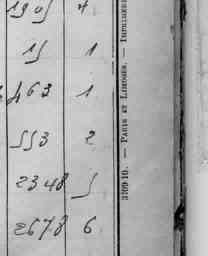 1905 4
15 1
463 1
553 2
2348 5
2678 6
3709-10. — PARIS ET LIMOGES. — IMPRIMERIE